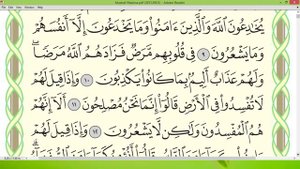 Mushaf Madina.pdf (SECURED) - Adobe Reader
يُخَٰدِعُونَ ٱللَّهَ وَٱلَّذِينَ ءَامَنُوا۟ وَمَا يَخْدَعُونَ إِلَّآ أَنفُسَهُمْ
وَمَا يَشْعُرُونَ ٩ فِى قُلُوبِهِم مَّرَضٌ فَزَادَهُمُ ٱللَّهُ مَرَضًا ۖ
وَلَهُمْ عَذَابٌ أَلِيمٌۢ بِمَا كَانُوا۟ يَكْذِبُونَ ١٠ وَإِذَا قِيلَ لَهُمْ
لَا تُفْسِدُوا۟ فِى ٱلْأَرْضِ قَالُوٓا۟ إِنَّمَا نَحْنُ مُصْلِحُونَ ١١ أَلَآ إِنَّهُمْ
هُمُ ٱلْمُفْسِدُونَ وَلَٰكِن لَّا يَشْعُرُونَ ١٢ وَإِذَا قِيلَ لَهُمْ